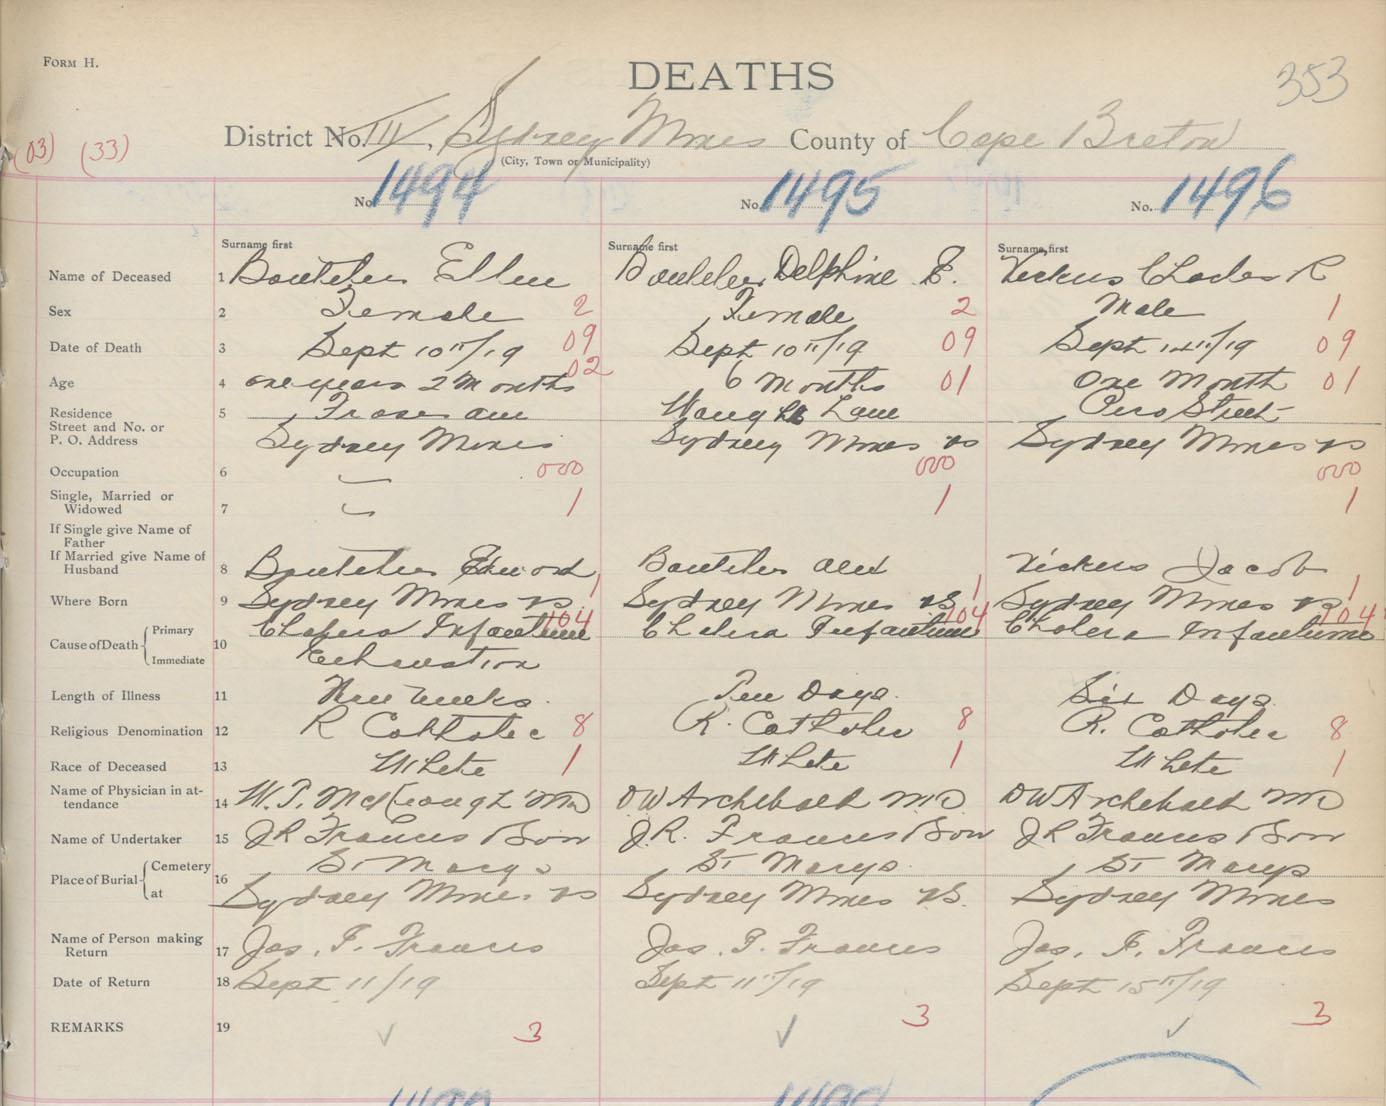 FORM H.
DEATHS
353
District No. III, Sydney Mines County of Cape Breton
(City, Town or Municipality)
(03) (33)
No. 1494 No. 1495 No. 1496
Surname first Surname first Surname first
Name of Deceased 1 Boutelier Ellen Boutelier Delphine E. Vickers Charles R
Sex 2 Female 2 Female 2 Male 1
Date of Death 3 Sept 10th/19 09 Sept 10th/19 09 Sept 14th/19 09
Age 4 one years 2 Months 02 6 Months 01 One Month 01
Residence 5 Fraser ave Waugh Lane Street
Street and No. or
P. O. Address Sydney Mines Sydney Mines NS Sydney Mines NS
Occupation 6 000 000 000
Single, Married or
Widowed 7 1 1 1
If Single give Name of
Father
If Married give Name of
Husband 8 Boutelier Edward Boutelier Alex Vickers Jacob
Where Born 9 Sydney Mines NS 1 Sydney Mines NS 1 Sydney Mines NS 1
104 104 104
Cause of Death Primary 10 Cholera Infantum Cholera Infantum Cholera Infantum
Immediate Exhaustion
Length of Illness 11 weeks. Ten Days. Six Days.
Religious Denomination 12 R Catholic 8 R. Catholic 8 R. Catholic 8
Race of Deceased 13 White 1 White 1 White 1
Name of Physician in at-
tendance 14 W. T. McKeough MD DW Archibald MD DW Archibald MD
Name of Undertaker 15 J R Francis & Son J. R. Francis & Son J R Francis & Son
Place of Burial Cemetery 16 St Marys St Marys. St Marys
at Sydney Mines NS Sydney Mines NS. Sydney Mines
Name of Person making
Return 17 Jas. F. Francis Jas. F. Francis Jas. F. Francis
Date of Return 18 Sept 11/19 Sept 11th/19 Sept 15th/19
REMARKS 19 3 3 3